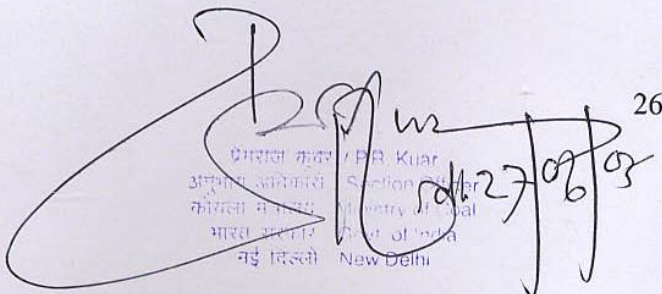 26
प्रेमराज कुवर / P.R. Kuar
अनुभाग अधिकारी Section Officer
कोयला मंत्रालय Ministry of Coal
भारत सरकार Govt. of India
नई दिल्ली New Delhi
27/06/03